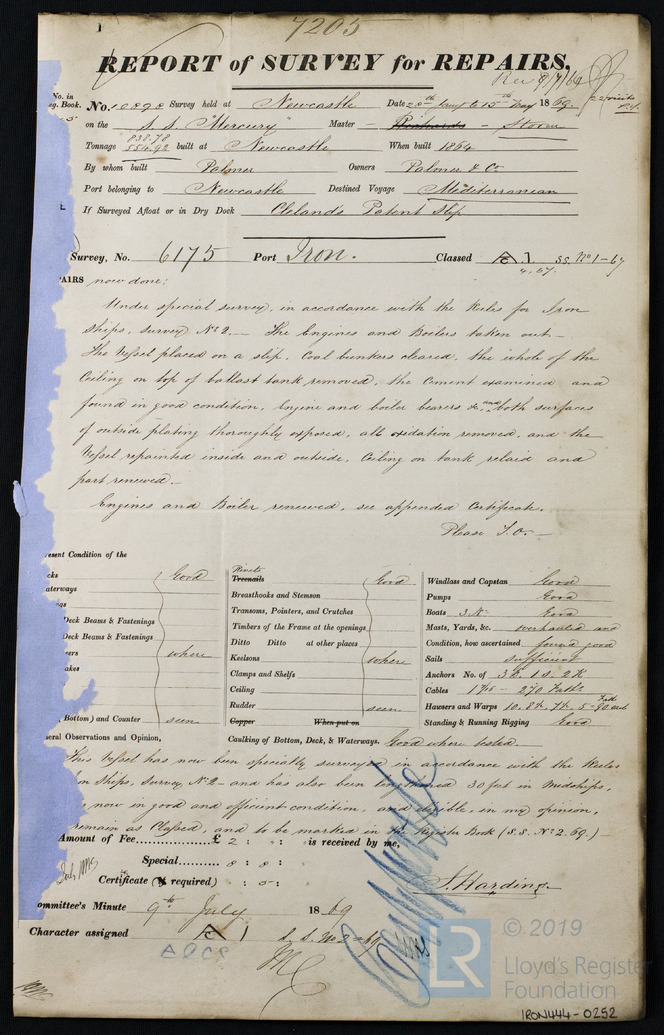 7205
REPORT of SURVEY for REPAIRS,
Rec 9/7/69
No. in
eg. Book.
No. Survey held at Newcastle Date 20th to 15th May 1869.
on the S.S. "Mercury" Master Richards - Storm
838.78
Tonnage 554.92 built at Newcastle When built 1864
By whom built Palmer Owners Palmer & Co
Port belonging to Newcastle Destined Voyage Mediterranean
If Surveyed Afloat or in Dry Dock Cleland's Patent Slip
Survey, No. 6175 Port Iron. Classed A 1 SS. No 1-67
4.67.
AIRS now done:
Under special survey, in accordance with the Rules for Iron
Ships, Survey No 2. — The Engines and Boilers taken out —
The Vessel placed on a slip, Coal bunkers cleared, the whole of the
Ceiling on top of ballast tank removed, the Cement examined and
found in good condition, Engine and boiler bearers &c, and both surfaces
of outside plating thoroughly exposed, all oxidation removed, and the
Vessel repainted inside and outside, Ceiling on tank relaid and
part renewed. —
Engines and Boiler renewed, see appended Certificate.
Please T.O. —
resent Condition of the
cks Good
aterways
ngs
Deck Beams & Fastenings
Deck Beams & Fastenings
eers where
akes
Bottom) and Counter seen
Rivets
Treenails Good
Breasthooks and Stemson
Transoms, Pointers, and Crutches
Timbers of the Frame at the openings
Ditto Ditto at other places
Keelsons where
Clamps and Shelfs
Ceiling
Rudder seen
Copper When put on
Windlass and Capstan Good
Pumps Good
Boats 3 No. Good
Masts, Yards, &c. overhauled and
Condition, how ascertained found good
Sails sufficient
Anchors No. of 3 B. 1 S. 2 K
Cables 1 7/16 - 270 Faths
Hawsers and Warps 10. 8½. 7½. 5 - 90 Fath each
Standing & Running Rigging Good
eral Observations and Opinion,
Caulking of Bottom, Deck, & Waterways. Good where tested.
This Vessel has now been specially surveyed in accordance with the Rules
on Ships, Survey No 2 - and has also been lengthened 30 feet in Midships,
now in good and efficient condition, and eligible, in my opinion,
remain as Classed, and to be marked in the Register Book (S.S. No 2. 69.) —
Amount of Fee £ 2 : : is received by me,
Special 8 : 8 :
Certificate (if required) : 5 :
J. Harding
ommittee's Minute 9th July 1869
Character assigned A 1 S.S. No 2-69
A&CP
© 2019
LR
Lloyd's Register
Foundation
IRON444-0252